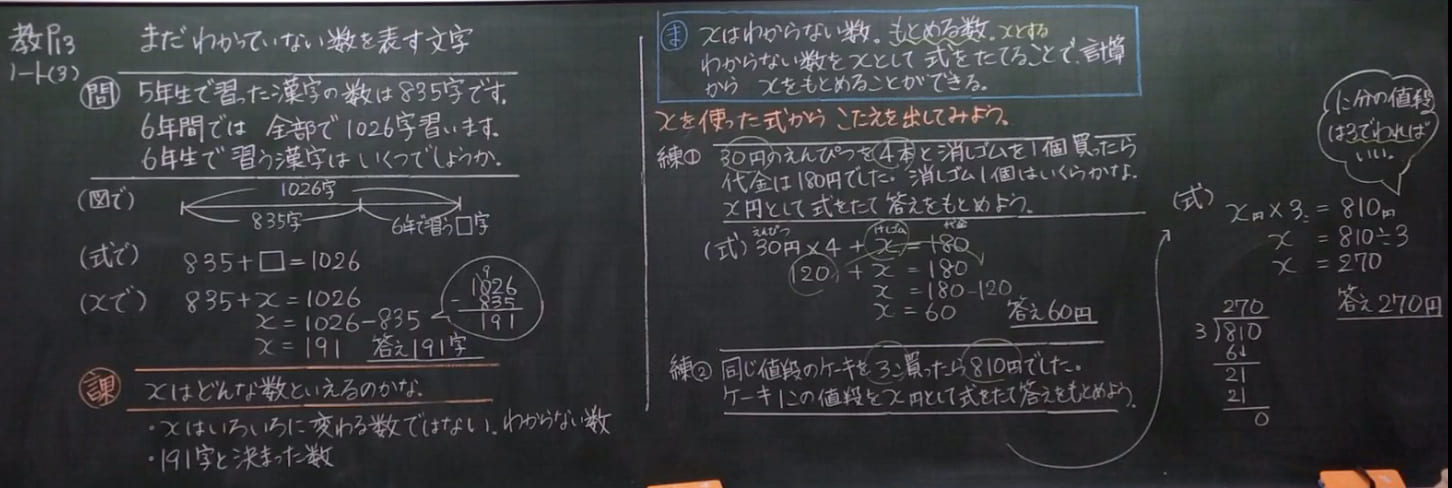 教P13
ノート(3)
まだわかっていない数を表す文字
問
5年生で習った漢字の数は835字です。
6年間では 全部で1026字習います。
6年生で習う漢字はいくつでしょうか。
(図で)
1026字
835字
6年で習う□字
(式で)
835+□=1026
(xで)
835+x=1026
x=1026-835
x=191 答え191字
9
1026
- 835
191
課
xはどんな数といえるのかな。
・xはいろいろに変わる数ではない。わからない数
・191字と決まった数
ま
xはわからない数。もとめる数。xとする
わからない数をxとして 式をたてることで、計算
から xをもとめることができる。
xを使った式から こたえを出してみよう。
練①
30円のえんぴつを4本と消しゴムを1個買ったら
代金は180円でした。消しゴム1個はいくらかな。
x円として式をたて答えをもとめよう。
えんぴつ 消しゴム 代金
(式) 30円×4+x=180
120+x=180
x=180-120
x=60 答え60円
練②
同じ値段のケーキを3こ買ったら810円でした。
ケーキ1この値段をx円として式をたて答えをもとめよう。
1こ分の値段
は3でわれば
いい。
(式)
x円×3こ=810円
x=810÷3
x=270
答え270円
270
3)810
6↓
21
21
0